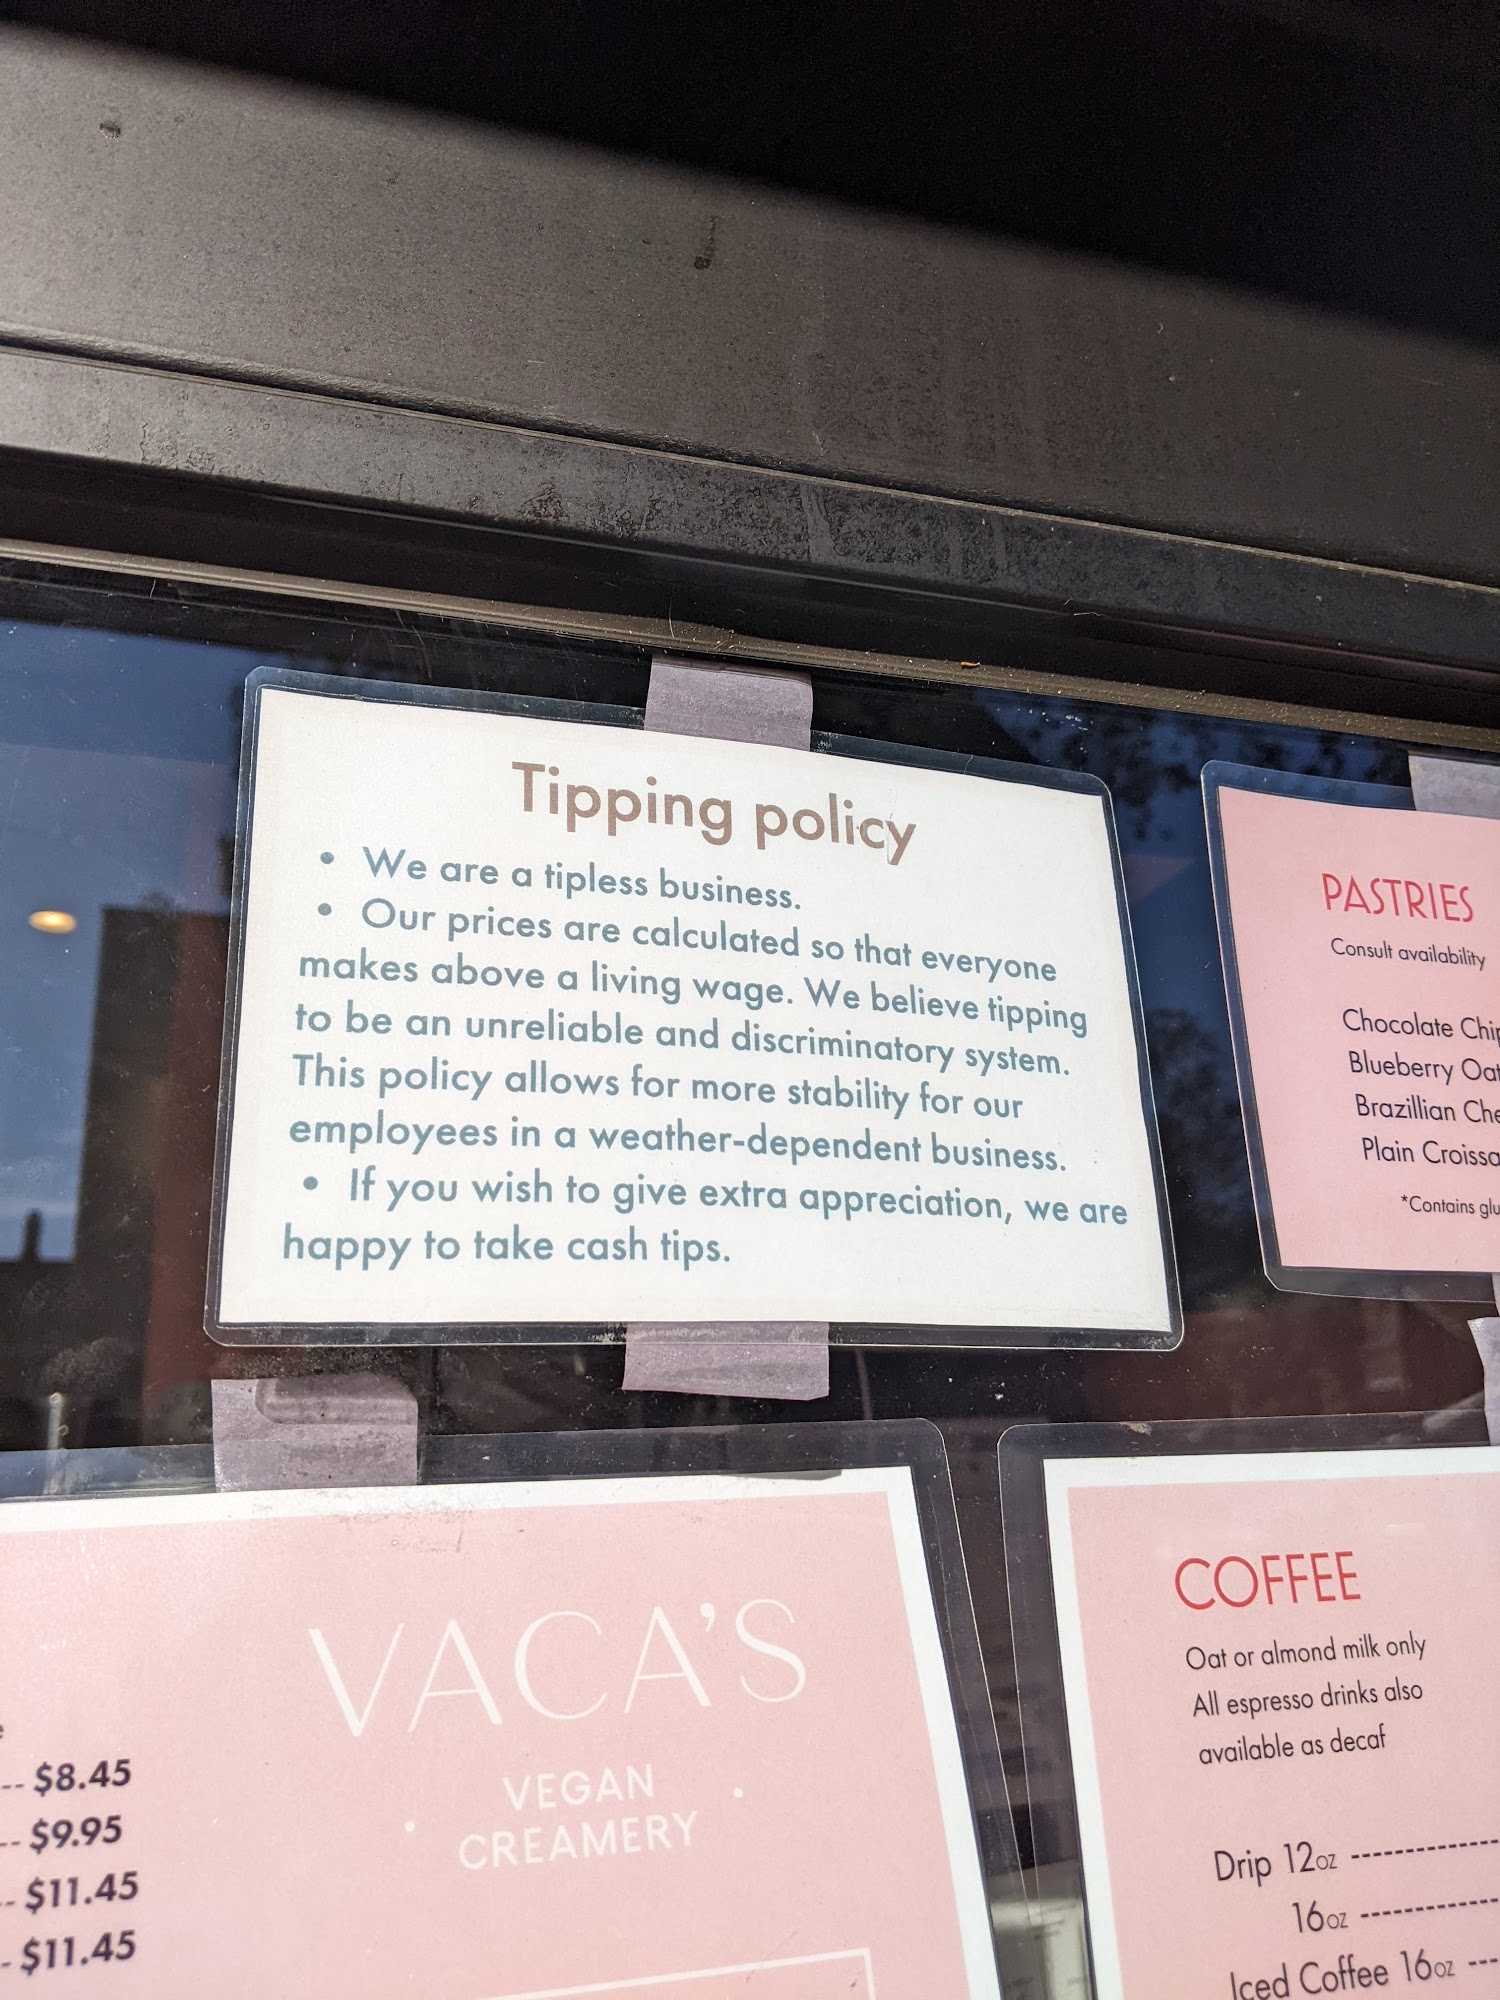 Tipping policy
• We are a tipless business.
• Our prices are calculated so that everyone
makes above a living wage. We believe tipping
to be an unreliable and discriminatory system.
This policy allows for more stability for our
employees in a weather-dependent business.
• If you wish to give extra appreciation, we are
happy to take cash tips.
PASTRIES
Consult availability
Chocolate Chip
Blueberry Oat
Brazillian Che
Plain Croissa
*Contains glu
VACA'S
• VEGAN •
CREAMERY
-- $8.45
-- $9.95
-- $11.45
- $11.45
COFFEE
Oat or almond milk only
All espresso drinks also
available as decaf
Drip 12oz ------------
16oz ------------
Iced Coffee 16oz ---